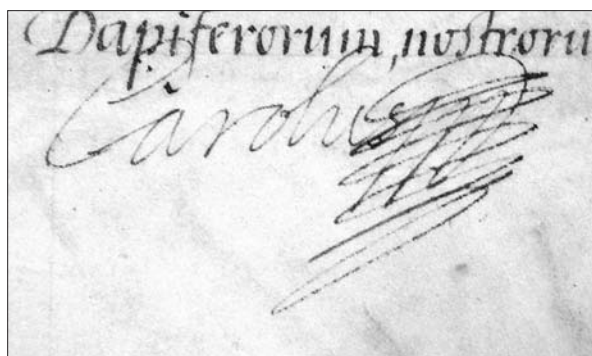 Dapiferorum, nostroru
Carolus